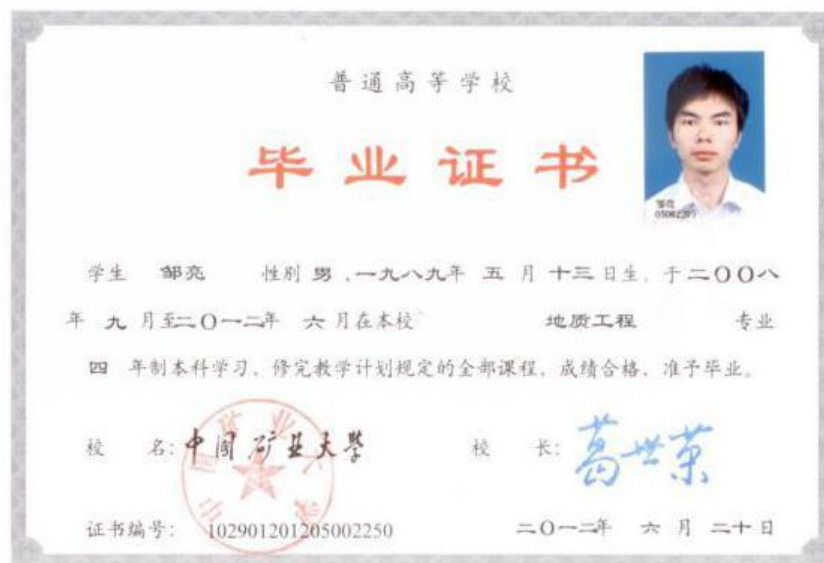 普通高等学校
毕业证书
邹亮
05082205
学生 邹亮 性别 男，一九八九年 五 月 十三 日生，于二〇〇八
年 九 月至二〇一二年 六 月在本校 地质工程 专业
四 年制本科学习，修完教学计划规定的全部课程，成绩合格，准予毕业。
校 名：中国矿业大学 校 长：葛世荣
证书编号： 102901201205002250 二〇一二年 六 月 二十 日